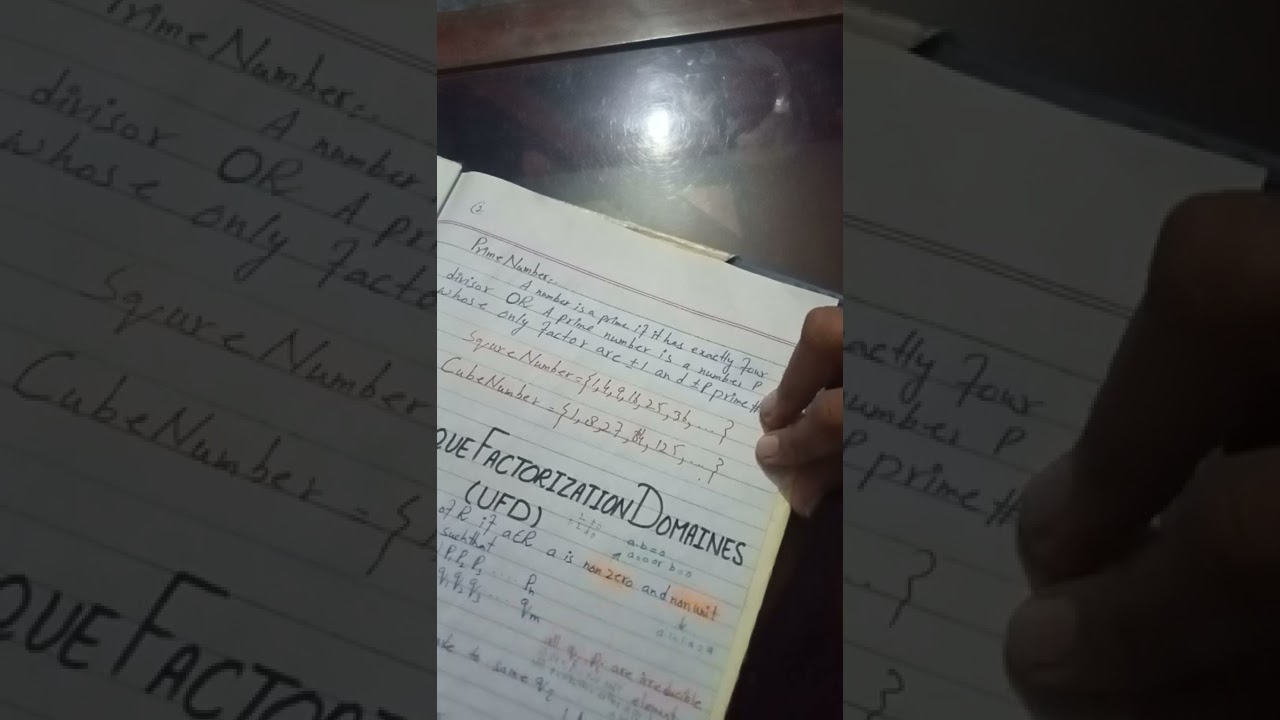 (2
Prime Number:-
A number is a prime if it has exactly Four
divisor OR A prime number is a number P
whose only Factor are ±1 and ±P prime #
Square Number = {1,4,9,16,25,36,....}
Cube Number = {1,8,27,64,125,....}
QUE FACTORIZATION DOMAINES
(UFD)
a.b=0
a=0 or b=0
of R if a∈R a is non zero and non unit
such that
P₁ P₂ P₃ .... Pn
q₁ q₂ q₃ .... qm
all qi Pi are irreducible
element
to same qi